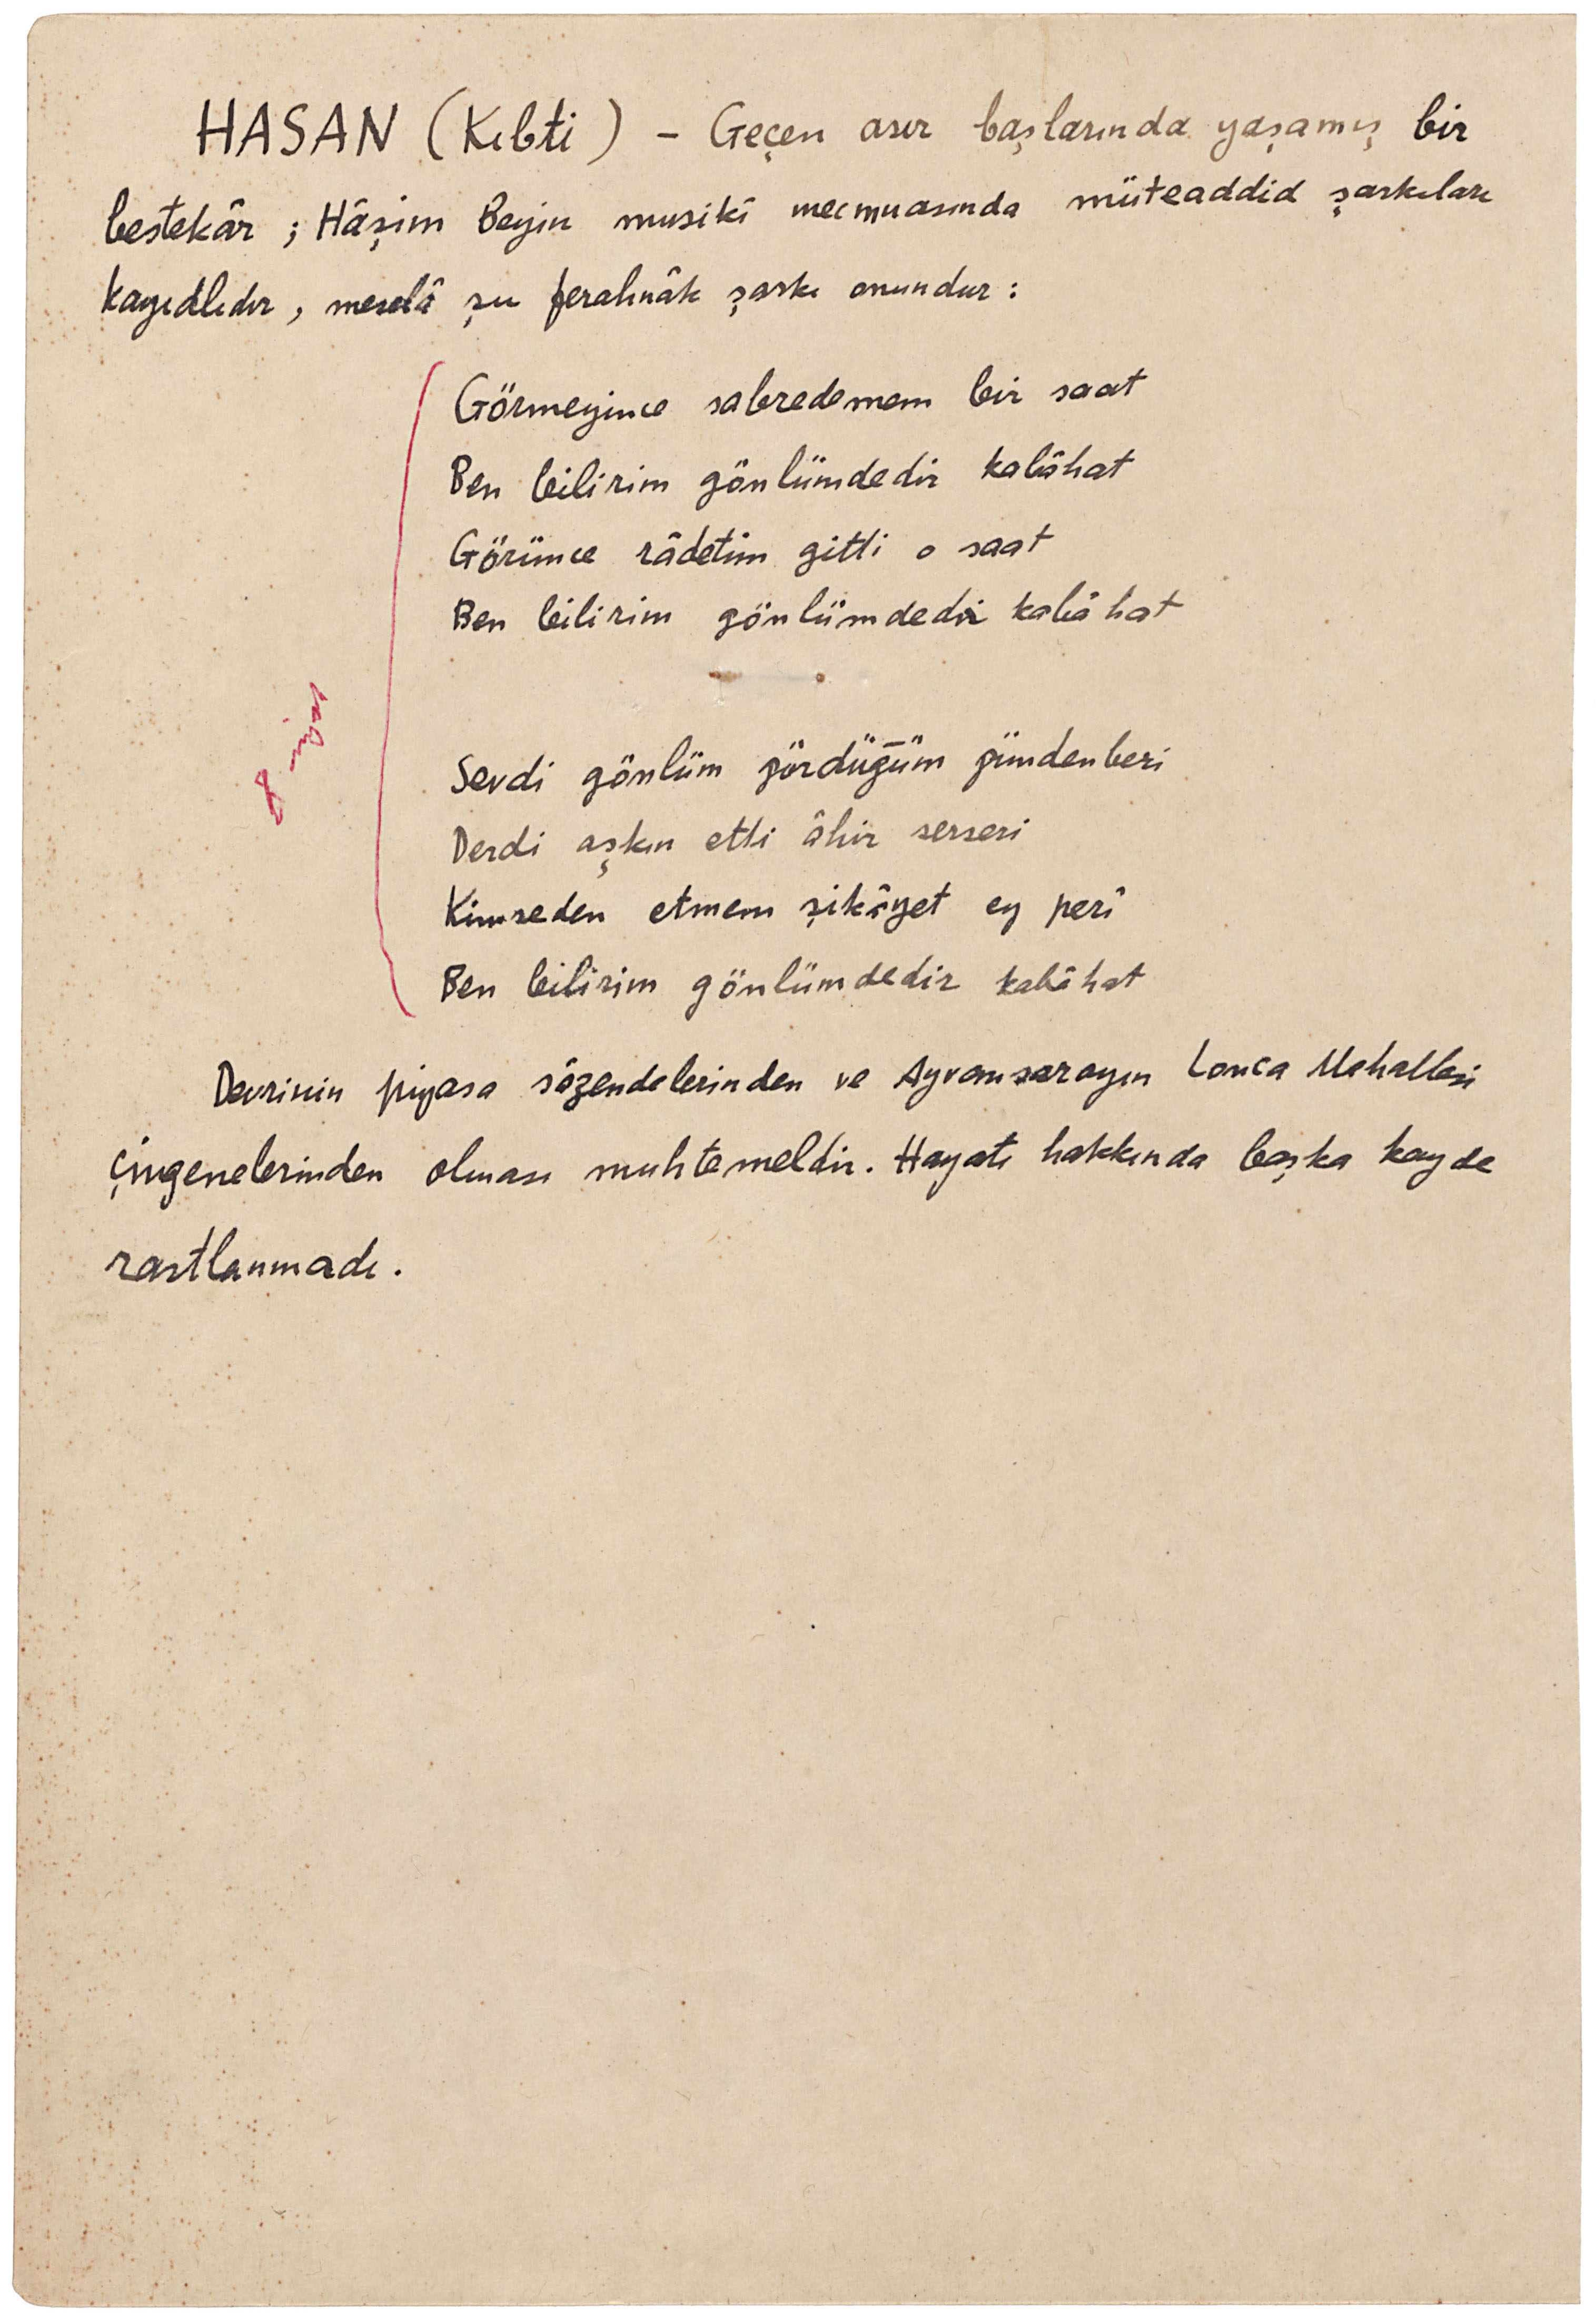 HASAN (Kıbti) - Geçen asır başlarında yaşamış bir
bestekâr; Hâşim Beyin musikî mecmuasında müteaddid şarkıları
kayıdlıdır, meselâ şu ferahnâk şarkı onundur:
Görmeyince sabredemem bir saat
Ben bilirim gönlümdedir kabâhat
Görünce râdetim gitti o saat
Ben bilirim gönlümdedir kabâhat
Sevdi gönlüm gördüğüm gündenberi
Derdi aşkın etti âhir serseri
Kimseden etmem şikâyet ey perî
Ben bilirim gönlümdedir kabâhat
Devrinin piyasa sâzendelerinden ve Ayvansarayın Lonca Mahallesi
çingenelerinden olması muhtemeldir. Hayatı hakkında başka kayde
rastlanmadı.